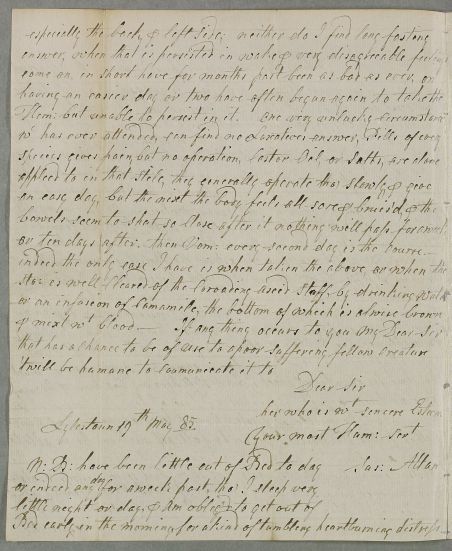 especially the back, & left side; neither do I find long fasting
answer, when that is persisted in wake & very disagreeable feelings
come on, in short have for months past been as bad as ever, on
having an easier day or two have often begun again to take the
but unable to persist in it. One very unlucky circumstance
wt has ever attended, can find no Laxatives answer, Pills of every
species gives pain but no operation, Castor Oil, or Salts, are alone
applied to in that state, they generally operate tho' slowly, & give
an easy day, but the next the body feels all sore & bruis'd, & the
bowels seem to shut so close after it nothing will pass for
or ten days after. then Vom: every second day is the
indeed the only ease I have is when taken the above, or when the
Sto: is well cleared of the Corroding Staff, by drinking Water
or an infusion of Camamile, the bottom of which is always brown
& mixt wt blood. If any thing occurs to you My Dear Sir
that has a chance to be of use to a poor suffering fellow creature
'twill be humane to Communicate it to
Dear Sir
her who is wt sincere Esteem
Lylestoun 19th May 85. Your most Hum: Sert
N: B: have been little out of Bed to day Jas: Allan
or indeed any day for a week past, tho' I sleep very
little night or day, & am oblig'd to get out of
Bed early in the morning for a kind of tumbling heartburning distress